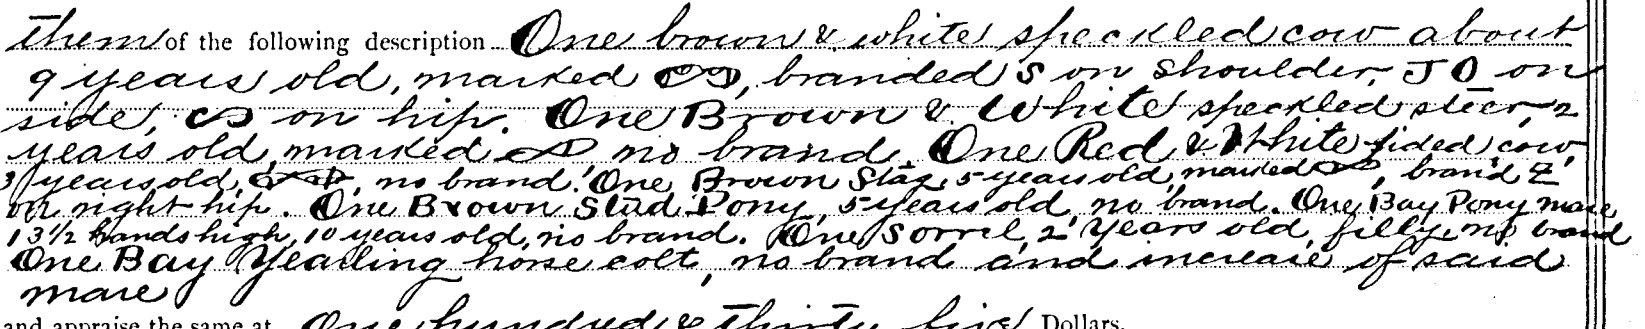 them of the following description One brown & white speckled cow about
9 years old, marked , branded S on shoulder, J O on
side, on hip. One Brown & White speckled steer, 2
years old, marked , no brand. One Red & White sided cow,
3 years old, , no brand. One Brown Stag, 5 years old, marked , brand Z
on right hip. One Brown Stud Pony, 5 years old, no brand. One Bay Pony mare
13 1/2 hands high, 10 years old, no brand. One Sorrel, 2 years old, filly, no brand
One Bay Yearling horse colt, no brand and increase of said
mare
and appraise the same at One hundred & Thirty five Dollars.